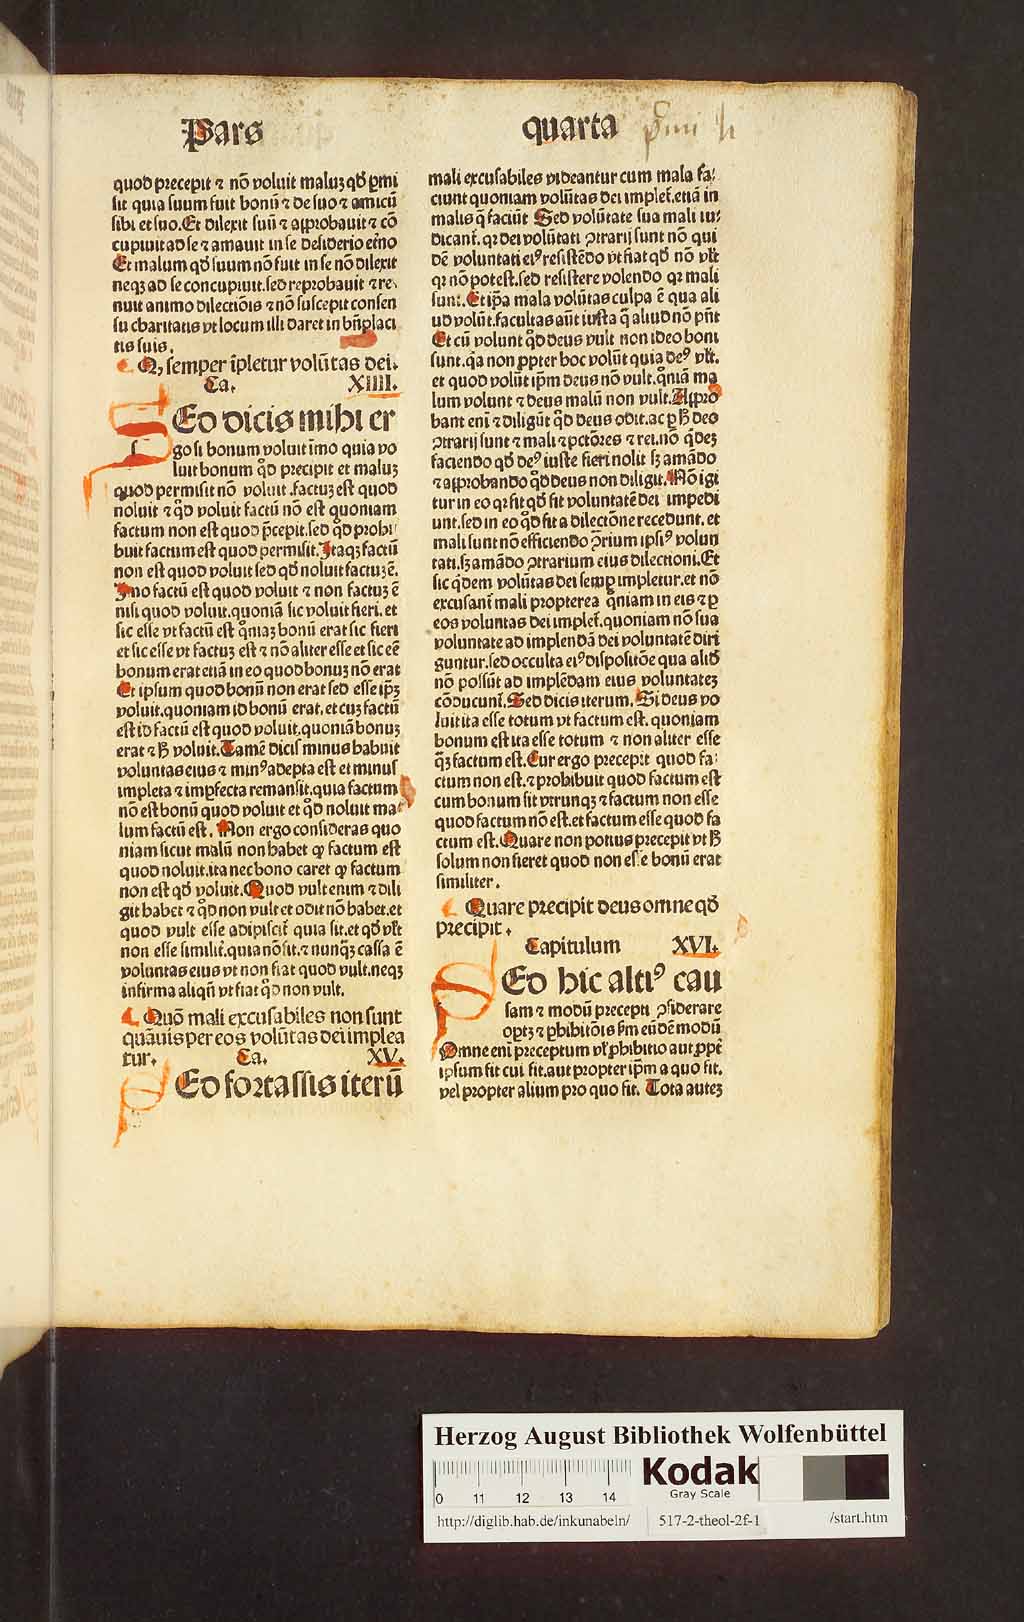 Pars
quarta
quod precepit ⁊ nō voluit maluʒ qď ꝑmi
sit quia suum fuit bonū ⁊ de suo ⁊ amicū
sibi et suo. Et dilexit suū ⁊ aꝓbauit ⁊ cō
cupiuit ad se ⁊ amauit in se desiderio et̄no
Et malum qď suum nō fuit in se nō dilexit
neqʒ ad se concupiuit. sed reprobauit ⁊ re
nuit animo dilectiōis ⁊ nō suscepit consen
su charitatis vt locum illi daret in bn̄placi
tis suis.
Q, semper īpletur volūtas dei.
Ca. XIIII.
Sed dicis mihi er
go si bonum voluit īmo quia vo
luit bonum qđ precipit et maluʒ
quod permisit nō voluit. factuʒ est quod
noluit ⁊ qđ voluit factū nō est quoniam
factum non est quod p̄cepit. sed qđ prohi
buit factum est quod permisit. Itaqʒ factū
non est quod voluit sed qď noluit factuʒ ē.
Imo factū est quod voluit ⁊ non factuʒ ē
nisi quod voluit. quoniā sic voluit fieri. et
sic esse vt factū est qm̄iaʒ bonū erat sic fieri
et sic esse vt factuʒ est ⁊ nō aliter esse et sic eē
bonum erat etiā in eo quod bonuʒ nō erat
Et ipsum quod bonū non erat sed esse ip̄ʒ
voluit. quoniam id bonū erat. et cuʒ factū
est id factū est quod voluit. quoniā bonuʒ
erat ⁊ ħ voluit. Tamē dicis minus habuit
voluntas eius ⁊ minꝰ adepta est et minus
impleta ⁊ imꝑfecta remansit. quia factum
nō est bonū quod voluit et qđ noluit ma
lum factū est. Non ergo consideras quo
niam sicut malū non habet ꝙ factum est
quod noluit. ita nec bono caret ꝙ factum
non est qď voluit. Quod vult enim ⁊ dili
git habet ⁊ qđ non vult et odit nō habet. et
quod vult esse adipiscit̄ quia sit. et qď vl̄t
non esse similit̄. quia nō sit. ⁊ nunqʒ cassa ē
voluntas eius vt non fiat quod vult. neqʒ
infirma aliqn̄ vt fiat qđ non vult.
Quō mali excusabiles non sunt
quāuis per eos volūtas dei implea
tur. Ca. XV.
Sed fortassis iterū
mali excusabiles videantur cum mala fa⸗
ciunt quoniam volūtas dei implet̄. etiā in
malis q̄ faciūt Sed volūtate sua mali iu⸗
dicant̄. qꝛ dei volūtati ꝯtrarij sunt nō qui
dē voluntati eiꝰ resistēdo vt fiat qď nō vl̄t
qꝛ nō potest. sed resistere volendo qꝛ mali
sunt. Et ip̄a mala volūtas culpa ē qua ali
ud volūt. facultas aūt iusta q̄ aliud nō pn̄t
Et cū volunt qđ deus vult non ideo boni
sunt. qa non ꝓpter hoc volūt quia deꝰ vl̄t.
et quod volūt ip̄m deus nō vult. qm̄iā ma
lum volunt ⁊ deus malū non vult. Aꝓpro
bant eni ⁊ diligūt qđ deus odit. ac ꝑ ħ deo
ꝯtrarij sunt ⁊ mali ⁊ pctōres ⁊ rei. nō qďeʒ
faciendo qď deꝰ iuste fieri nolit sʒ amādo
⁊ aꝓprobando qđ deus non diligit. Nō igi
tur in eo qꝛ fit qď fit voluntatē dei impedi
unt. sed in eo qđ fit a dilectōne recedunt. et
mali sunt nō efficiendo ꝯrium ipsiꝰ volun
tati. sʒ amādo ꝯtrarium eius dilectioni. Et
sic qďem volūtas dei semꝑ impletur. et nō
excusant̄ mali propterea qm̄iam in eis ⁊ ꝑ
eos voluntas dei implet̄. quoniam nō sua
voluntate ad implendā dei voluntatē diri
guntur. sed occulta eiꝰ dispositōe qua aliď
nō possūt ad implēdam eius voluntateʒ
cōducunt̄. Sed dicis iterum. Si deus vo
luit ita esse totum vt factum est. quoniam
bonum est ita esse totum ⁊ non aliter esse
qʒ factum est. Cur ergo precepit quod fa⸗
ctum non est. ⁊ prohibuit quod factum est
cum bonum sit vtrunqʒ ⁊ factum non esse
quod factum nō est. et factum esse quod fa
ctum est. Quare non potius precepit vt ħ
solum non fieret quod non esse bonū erat
similiter.
Quare precipit deus omne qď
precipit.
Capitulum XVI.
Sed hic altiꝰ cau
sam ⁊ modū precepti ꝯsiderare
oportʒ ⁊ ꝓhibitōis ẜm eūdē modū
Omne eni preceptum vl̄ ꝓhibitio aut ꝓpt̄
ipsum fit cui fit. aut propter ip̄m a quo fit.
vel propter alium pro quo fit. Tota auteʒ
Herzog August Bibliothek Wolfenbüttel
0 11 12 13 14
Kodak
Gray Scale
http://diglib.hab.de/inkunabeln/
517-2-theol-2f-1
/start.htm